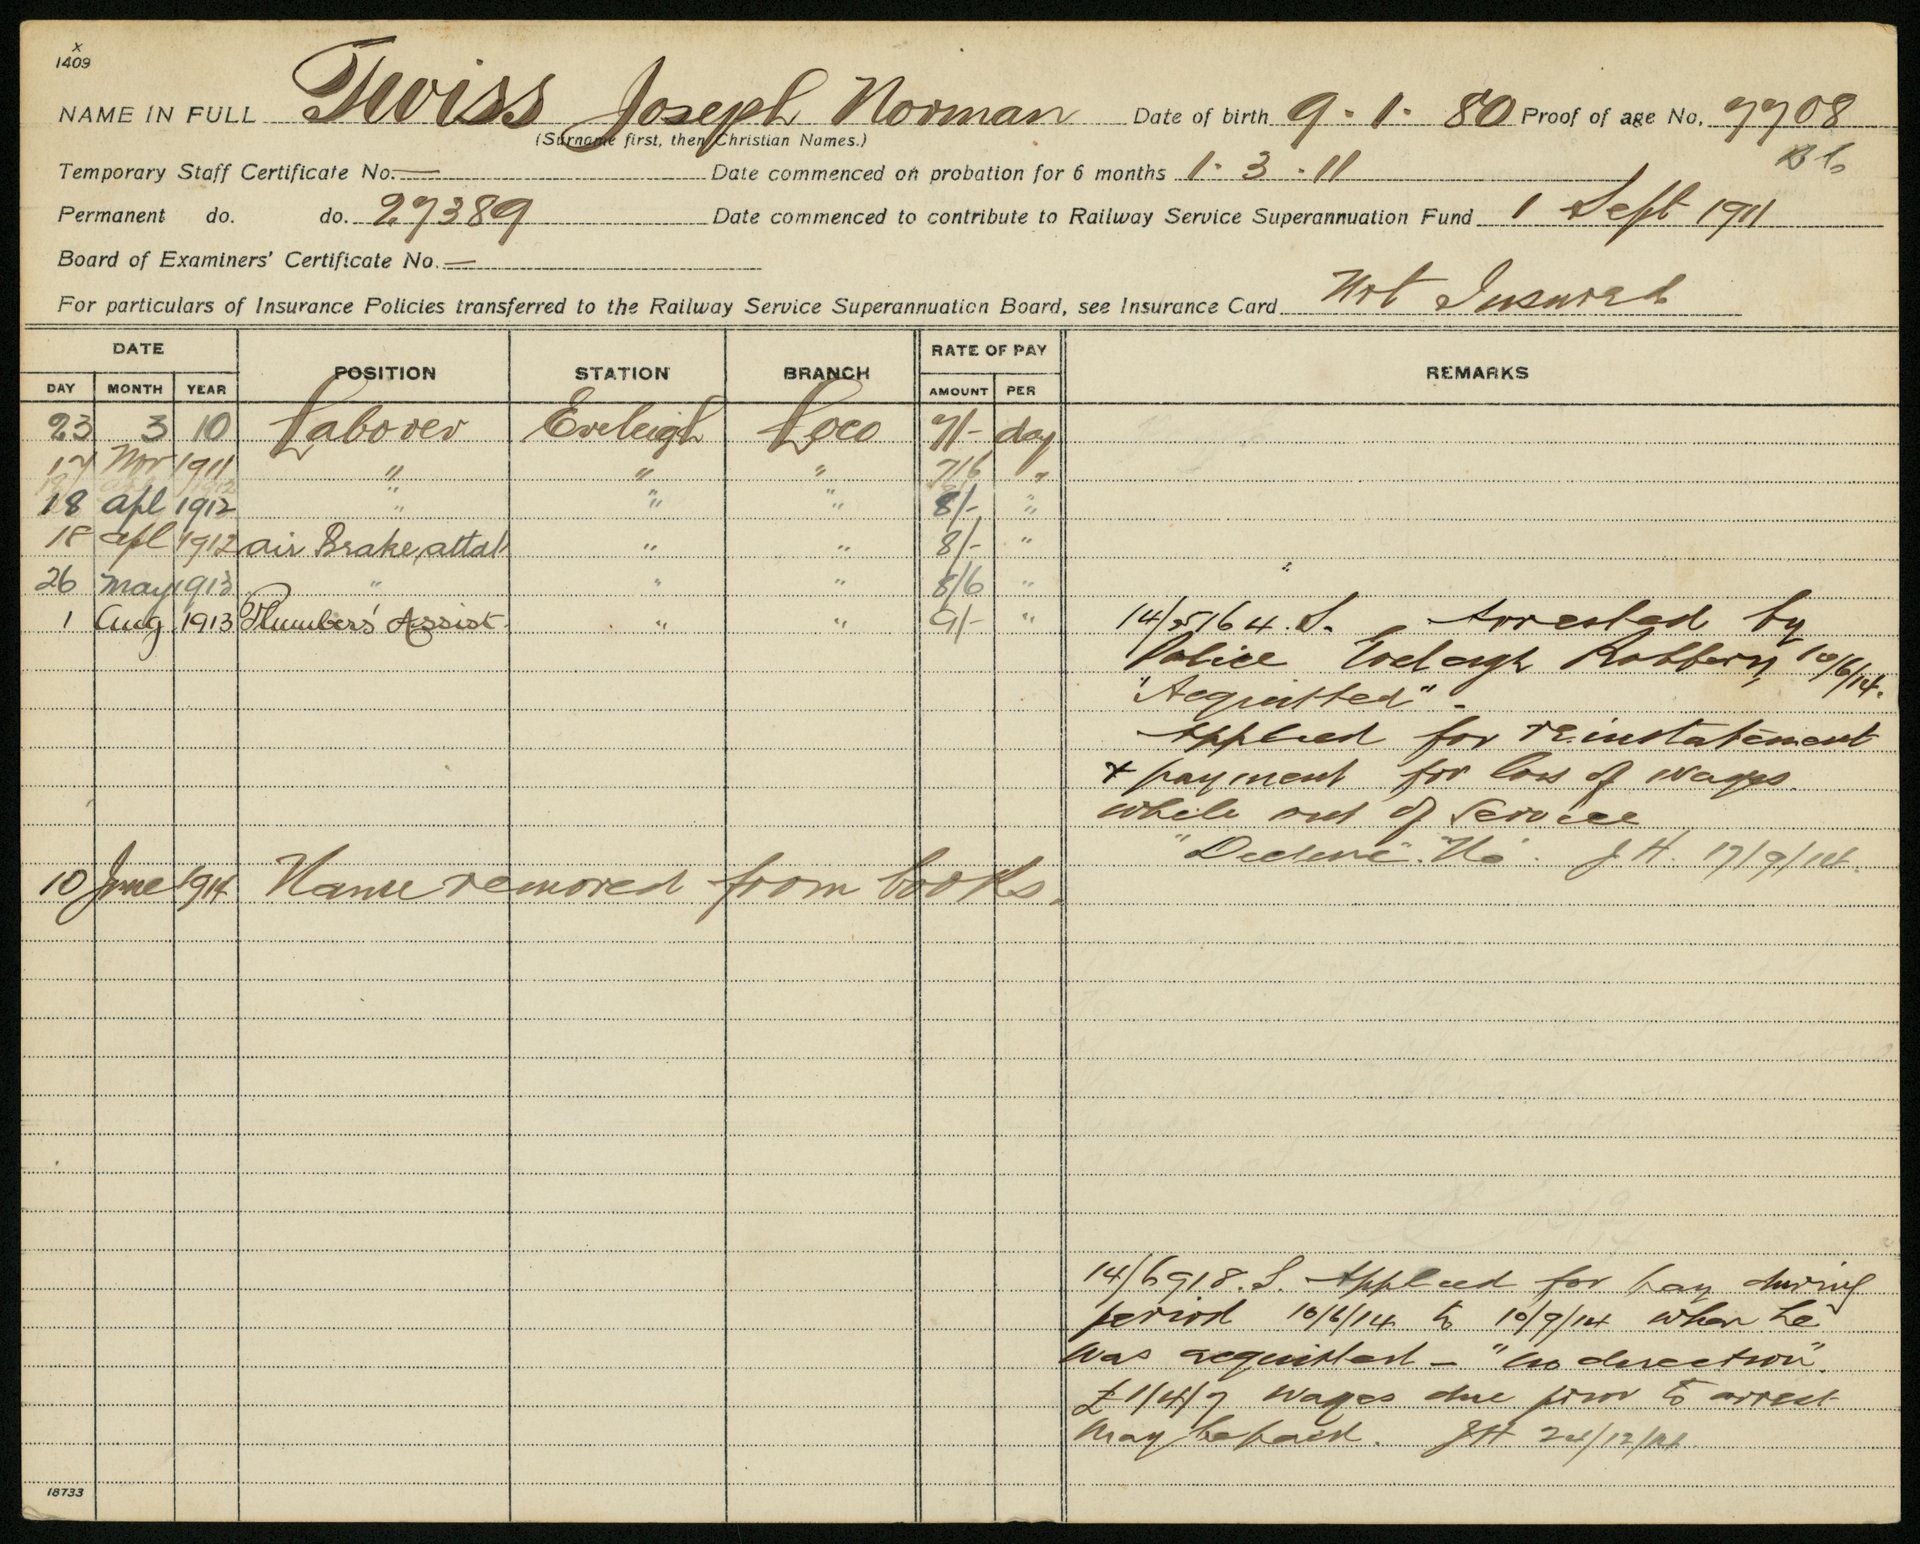 x
1409
NAME IN FULL Twiss Joseph Norman Date of birth 9.1.80 Proof of age No. 7708
(Surname first, then Christian Names.)
Temporary Staff Certificate No. — Date commenced on probation for 6 months 1.3.11
Permanent do. do. 27389 Date commenced to contribute to Railway Service Superannuation Fund 1 Sept 1911
Board of Examiners' Certificate No. —
For particulars of Insurance Policies transferred to the Railway Service Superannuation Board, see Insurance Card Not Insured
DATE POSITION STATION BRANCH RATE OF PAY REMARKS
DAY MONTH YEAR AMOUNT PER
23 3 10 Laborer Eveleigh Loco 7/- day
17 Nov 1911 " " " 7/6 "
18 Apl 1912 " " " 8/- "
18 Apl 1912 Air Brake attdt " " 8/- "
26 May 1913 " " " 8/6 "
1 Aug 1913 Plumber's Assist. " " 9/- "
14/5164.S. Arrested by
Police Eveleigh Robbery 10/6/14.
"Acquitted".
Applied for reinstatement
& payment for loss of wages
while out of service
"Decline". "No". J.H. 17/9/14.
10 June 1914 Name removed from books.
14/6918.S. Applied for pay during
period 10/6/14 to 10/9/14 when he
was acquitted — "no direction".
£1/4/7 wages due prior to arrest
may be paid. JH 24/12/14.
18733